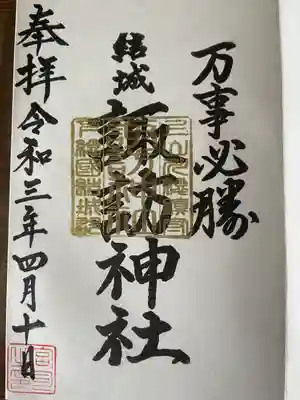 万事必勝
結城
諏訪神社
奉拝令和三年四月十日